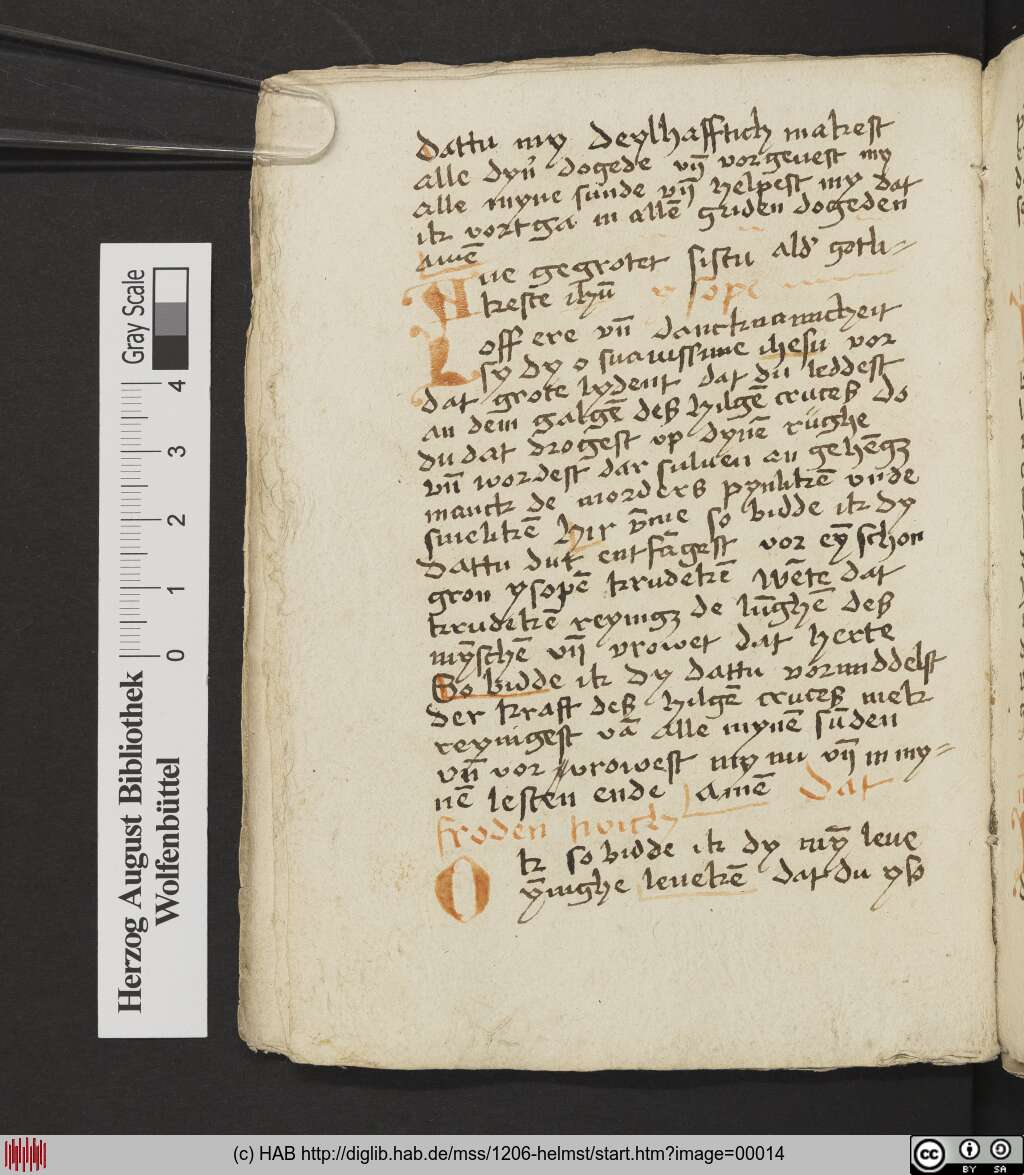 dattu my deylhafftich makest
alle dyn̄ dogede vn̄ vorgeuest my
alle myne sunde vn̄ helpest my dat
ik vortga in allē guden dogeden
amē
Aue gegrotet sistu ald' gotli-
keste ihū ysope
Loff ere vn̄ danckna micheit
sy dy o suauissime ihesu vor
dat grote lydent dat du leddest
an dem galgē des hilgē cruces do
du dat drogest vp dynē rüghe
vn̄ wordest dar suluen an gehēgz
manck de morders pynlikē vnde
smelikē hir v̄me so bidde ik dy
dattu dut entfāgest vor eȳ schon
gron ysopē krudekē wēte dat
krudekē reyingz de lūghē des
mȳschē vn̄ vrowet dat herte
So bidde ik dy dattu vormiddelst
der kraft des hilgē cruces mek
reyingest vā alle mynē sūden
vn̄ vor vrowest my nu vn̄ in my-
nē lesten ende amē Dat
froden
Ok so bidde ik dy mȳ leue
ȳnighe leuekē dat du yso
Herzog August Bibliothek
Wolfenbüttel
0 1 2 3 4
Gray Scale
(c) HAB http://diglib.hab.de/mss/1206-helmst/start.htm?image=00014
cc BY SA